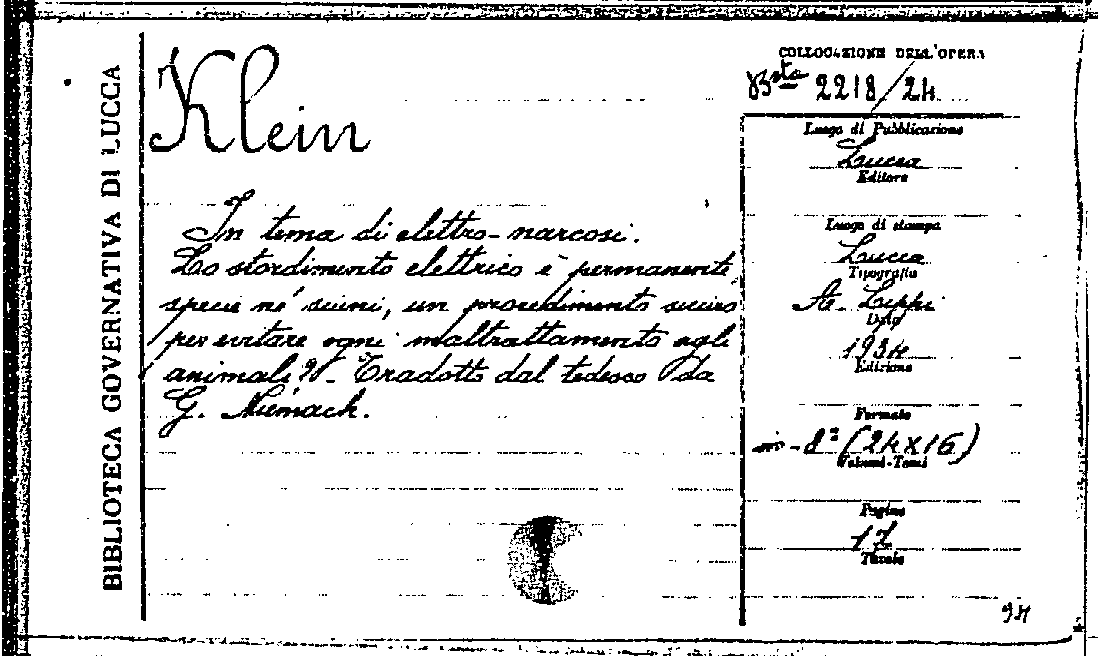 BIBLIOTECA GOVERNATIVA DI LUCCA
Klein
In tema di elettro-narcosi.
Lo stordimento elettrico è permanente
specie ne' suini, un procedimento sicuro
per evitare ogni maltrattamento agli
animali?! - Tradotto dal tedesco da
G. Niemack.
COLLOCAZIONE DELL'OPERA
Bsta 2218/24
Luogo di Pubblicazione
Lucca
Editore
Luogo di stampa
Lucca
Tipografia
A. Lippi
Data
1934
Edizione
Formato
in-8° (24x16)
Volumi-Tomi
Pagine
17
Tavole
94